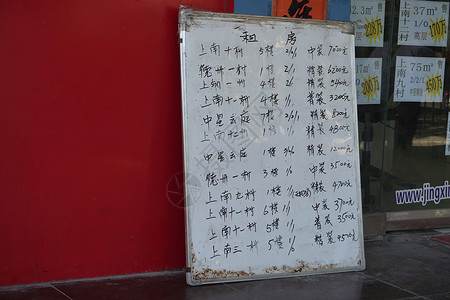 租房
上南十村 5楼 2/1 中装 7000元
德州一村 1楼 2/1 精装 6200元
上钢一村 4楼 2/ 精装
上南十一村 4楼 1/1 普装 3200元
中星云庭 7楼 2/1/1 精装
上南十二村 1楼 1/1 精装 4800元
中星云庭 1楼 3/ 精装 12000元
德州一村 3楼 1/ 中装 3500元
上南九村 1楼 1/1 精装 4700元
上南十一村 6楼 1/1 中装 3700元
上南十一村 5楼 1/1 普装 3500元
上南三村 5楼 1/ 精装 4500元
上南十一村
高层
上南九村
75m²
售
www.jingxin